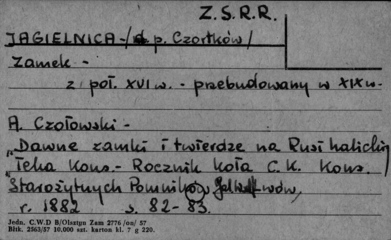 Z.S.R.R.
JAGIELNICA - / d. p. Czortków /
Zamek -
z poł. XVI w. - przebudowany w XIX w.
A. Czołowski -
"Dawne zamki i twierdze na Rusi halickiej
"Teka Kons. - Rocznik Koła C.K. Kons.
Starożytnych Pomników
r. 1882 s. 82-83.
Jedn. C.W.D B/Olsztyn Zam 2776/on/57
Błtk. 2563/57 10.000 szt. karton kl. 7 g 220.